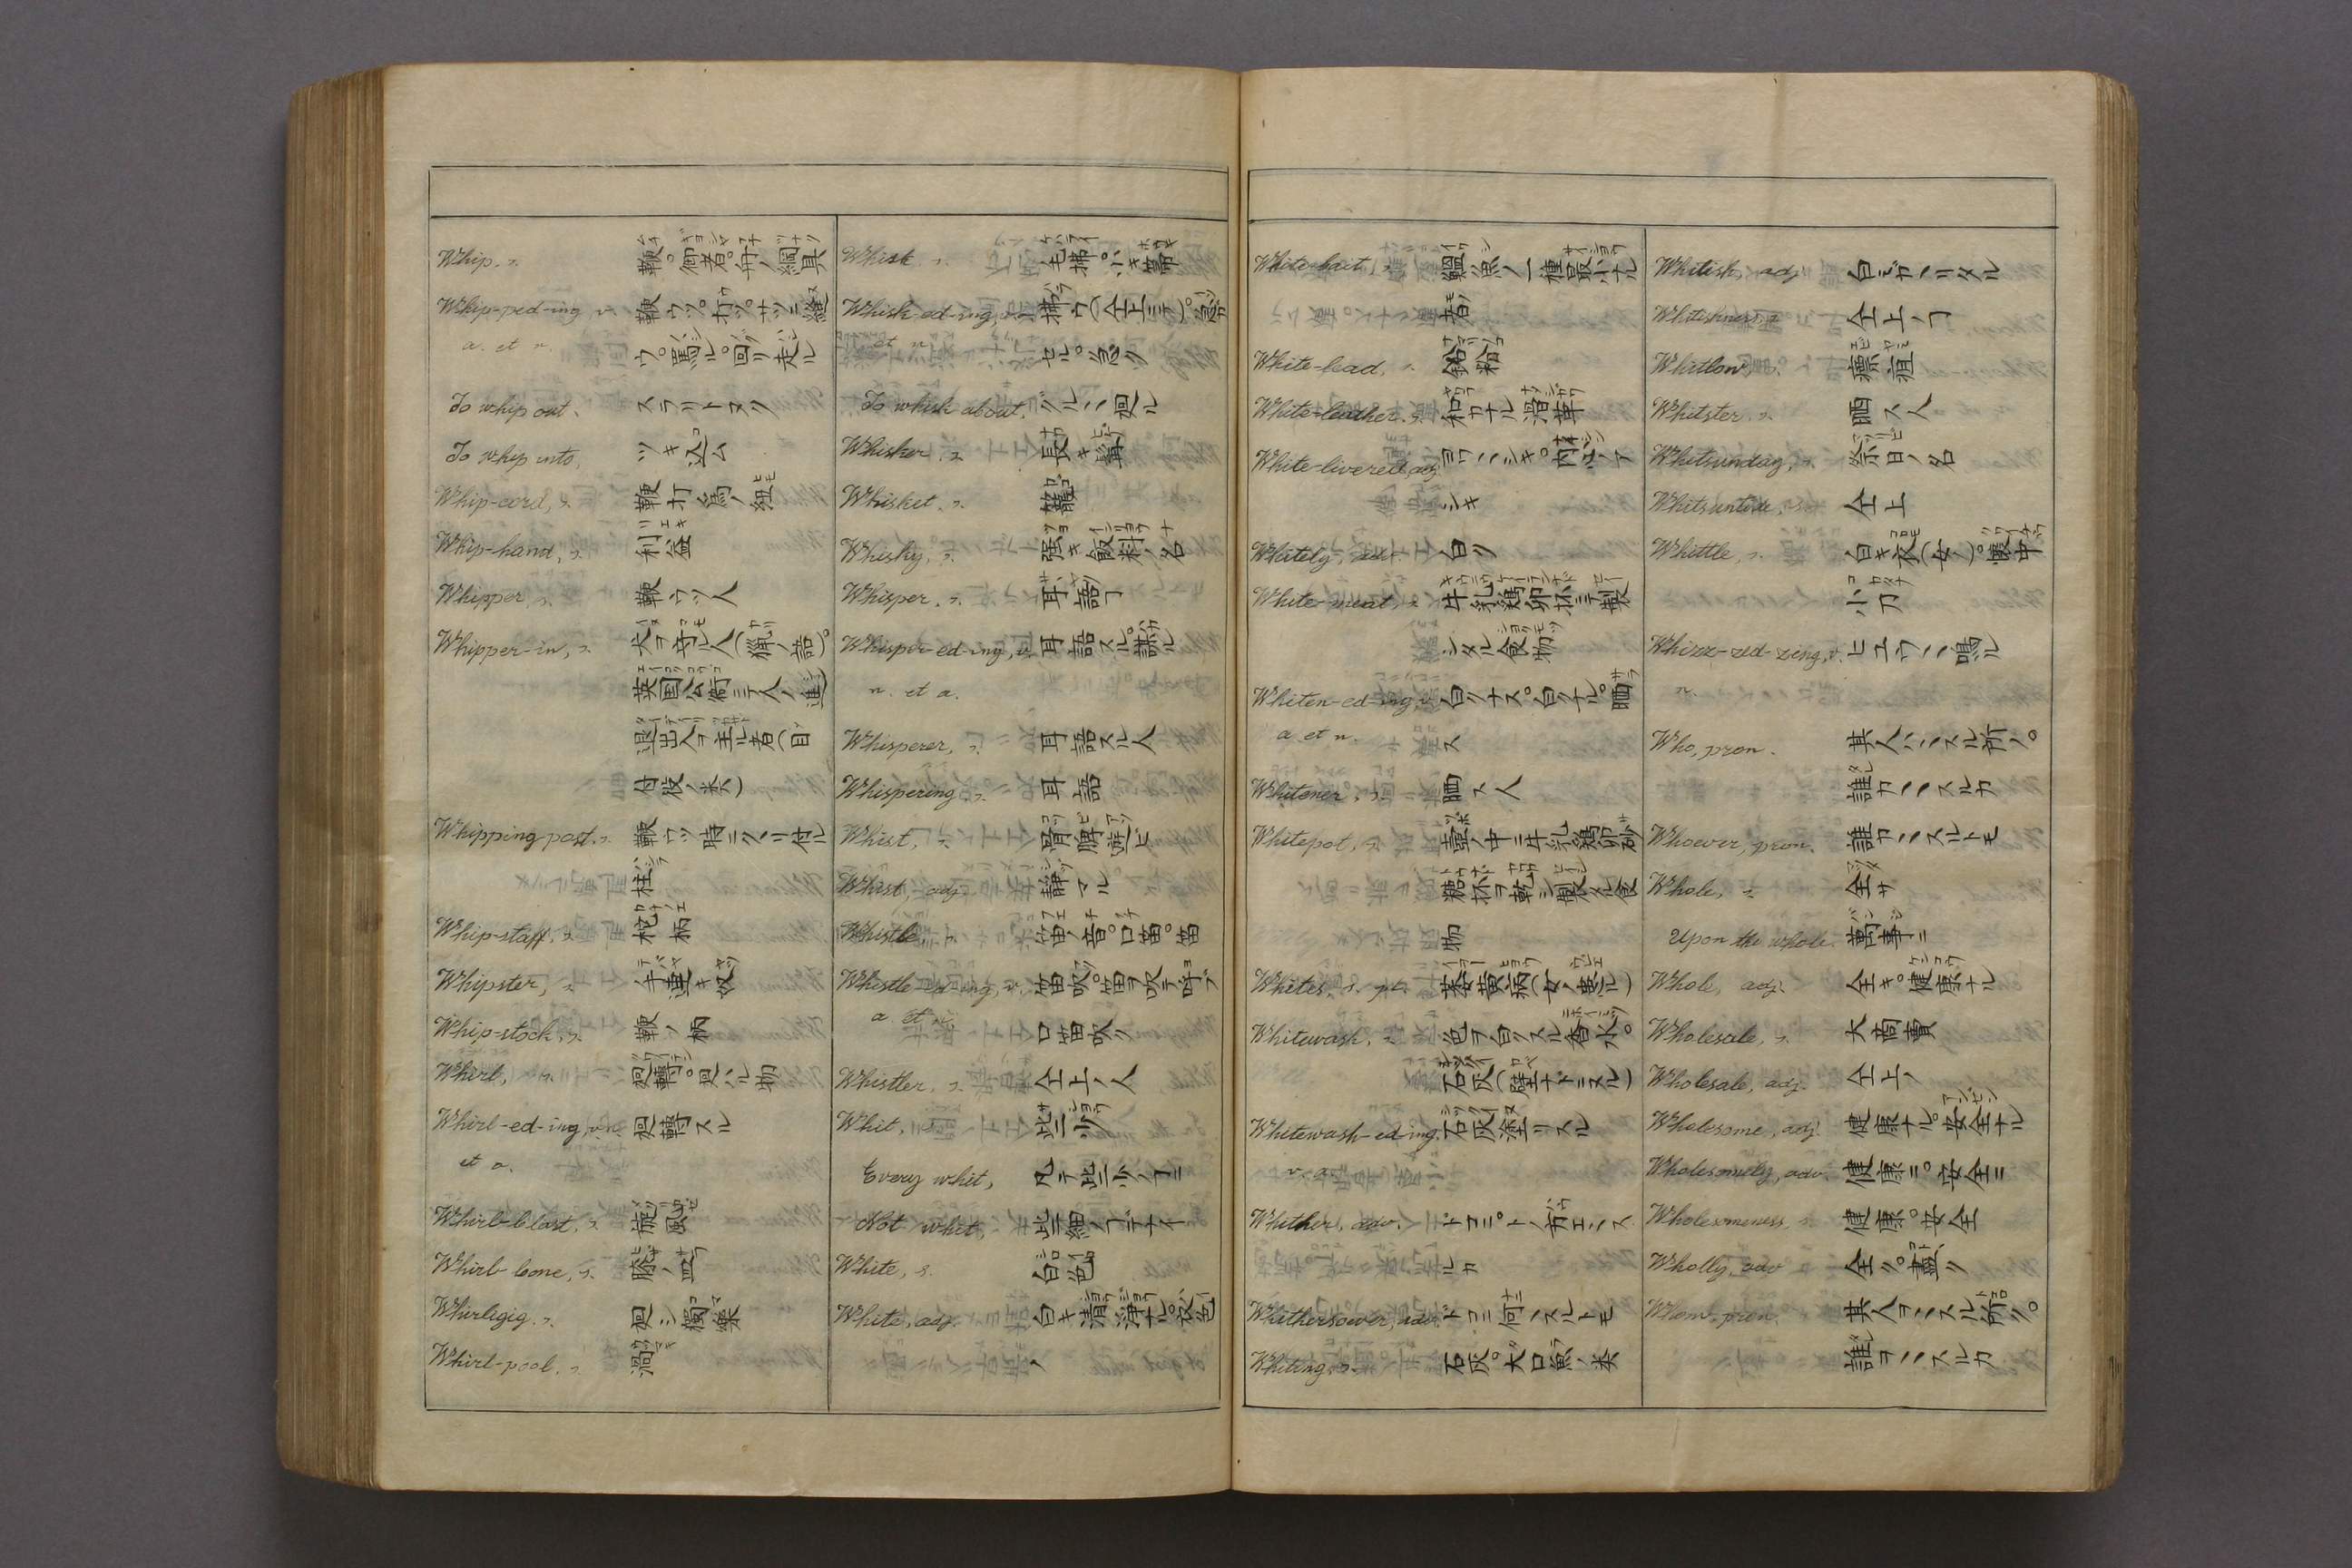 Whip, s. 鞭。御者。舟ノ綱具
Whip-ped-ing, v. 鞭ウツ。打ツ。サツニ縫
a. et n. ウ。罵ル。回リ走ル
To whip out. スラリトヌク
To whip into, ツキ込ム
Whip-cord, s. 鞭打為ノ紐
Whip-hand, s. 利益
Whipper, s. 鞭ウツ人
Whipper-in, s. 犬ヲ守ル人(猟ノ語)。
英国公術ニテ人ノ進
退出入ヲ主ル者(目
付役ノ类)
Whipping-post, s. 鞭ウツ時ニクヽリ付ル
柱
Whip-staff, s. 柁柄
Whipster, s. 手速キ奴
Whip-stock, s. 鞭ノ柄
Whirl, s. 廻轉。廻ハル物
Whirl-ed-ing, v. n. 廻轉スル
et a.
Whirl-blast, s. 旋風
Whirl-bone, s. 膝ノ皿
Whirligig, s. 廻シ獨樂
Whirl-pool, s. 渦
Whisk, s. 毛拂。小キ箒
Whisk-ed-ing, v. a. 拂ウ(仝上ニテ)。急
et n. セル。急ク
To whisk about, グルヽヽ廻ル
Whisker, s. 長キ鬚
Whisket, s. 籠
Whisky, s. 强キ飲料ノ名
Whisper, s. 耳語
Whisper-ed-ing, v. 耳語スル。謀ル
n. et a.
Whisperer, s. 耳語スル人
Whispering, s. 耳語
Whist, s. 骨牌遊ヒ
Whist, adj. 静マル
Whistle, s. 笛ノ音。口笛。笛
Whistle-ed-ing, v. 笛吹。笛ヲ吹テ呼ブ
a. et n. 口笛吹ク
Whistler, s. 仝上ノ人
Whit, s. 些少
Every whit, 凡テ些少ノヿニ
Not whit, 些細ノヿデナイ
White, s. 白色
White, adj. 白キ。清浄ナル。灰色
ノ
White-bait, s. 鰮漁ノ一種最小ナル
者
White-lead, s. 鉛粉
White-leather, s. 和カナル滑革
White-livered, adj. ヨワヽヽシキ。内心ノア
シキ
Whitely, adv. 白ク
White-meat, s. 牛乳鶏卵抔ニテ製
シタル食物
Whiten-ed-ing, v. 白クナス。白クナル。晒
a. et n. ス
Whitener, s. 晒ス人
Whitepot, s. 壷ノ中ニ牛乳鶏卵砂
糖抔ヲ乾シ製スル食
物
Whites, s. pl. 萎黄病(女ノ患ル)
Whitewash, s. 色ヲ白クスル香水。
石灰(壁ナドニヌル)
Whitewash-ed-ing, 石灰塗リスル
v. a.
Whither, adv. ドコニ。ドノガエヽス
ルカ
Whithersoever, adv. ドコニ何ニヽスルトモ
Whiting, s. 石灰。大口魚ノ类
Whitish, adj. 白ジカヽリタル
Whitishness, s. 仝上ノヿ
Whitlow, s. 瘭疽
Whitster, s. 晒ス人
Whitsunday, s. 祭日ノ名
Whitsuntide, s. 仝上
Whittle, s. 白キ衣(女ノ)。懐中
小刀
Whizz-zed-zing, v. ヒユウヽヽ鳴ル
n.
Who, pron. 其人ハヽスル所ノ。
誰カヽスルカ
Whoever, pron. 誰カヽスルトモ
Whole, s. 全サ
Upon the whole. 萬事ニ
Whole, adj. 全キ。健康ナル
Wholesale, s. 大商賣
Wholesale, adj. 仝上ノ
Wholesome, adj. 健康ナル。安全ナル
Wholesomely, adv. 健康ニ。安全ニ
Wholesomeness, s. 健康。安全
Wholly, adv. 全ク。盡ク
Whom, pron. 其人ヲヽスル所ノ。
誰ヲヽスルカ